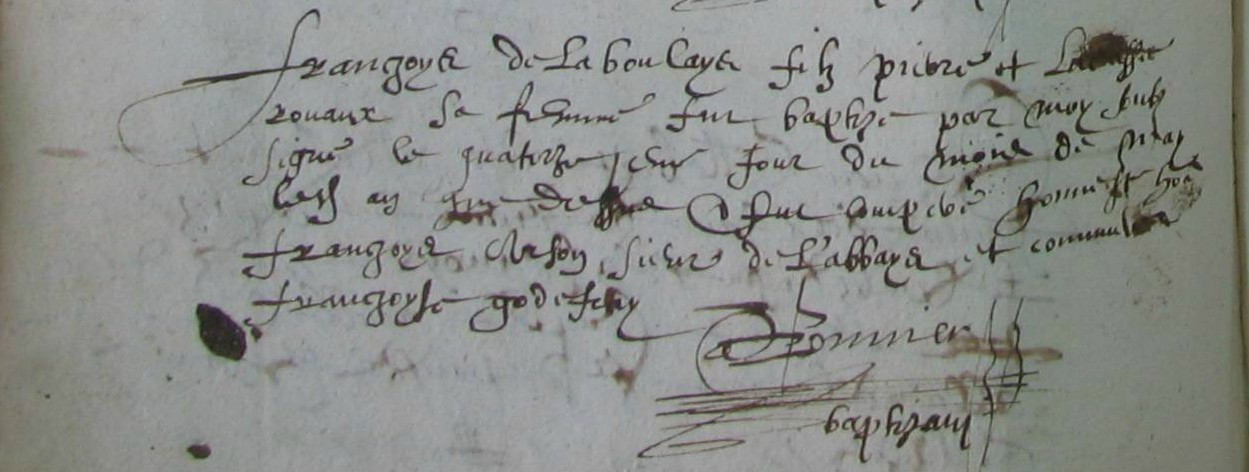 Françoys de la boulaye filz pierre et
rouaux sa femme fut baptizé par moy soubz
signé le quatorze jeme jour du moys de may
an que dessus fut compere honneste hoe
Françoys sieur de l'abbaye et commere
Françoyse godefroy
baptizay